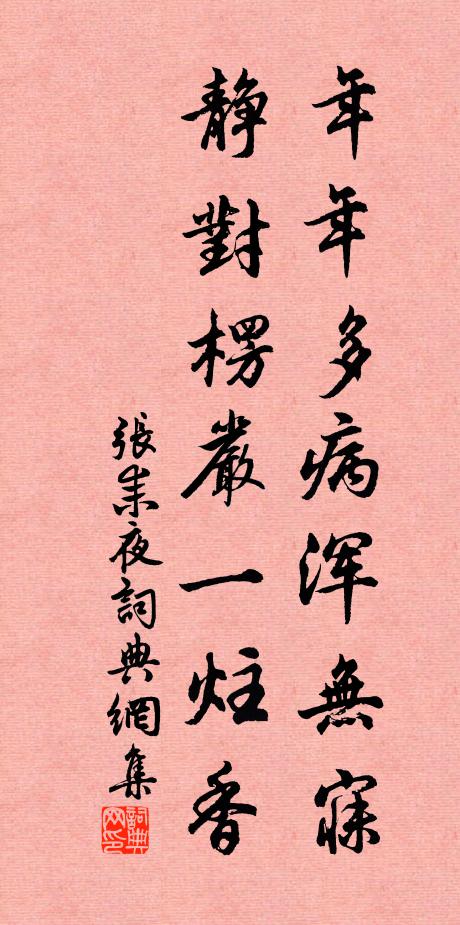 年年多病浑無寐
静對楞嚴一炷香
張耒夜詞典網集
詞典网印